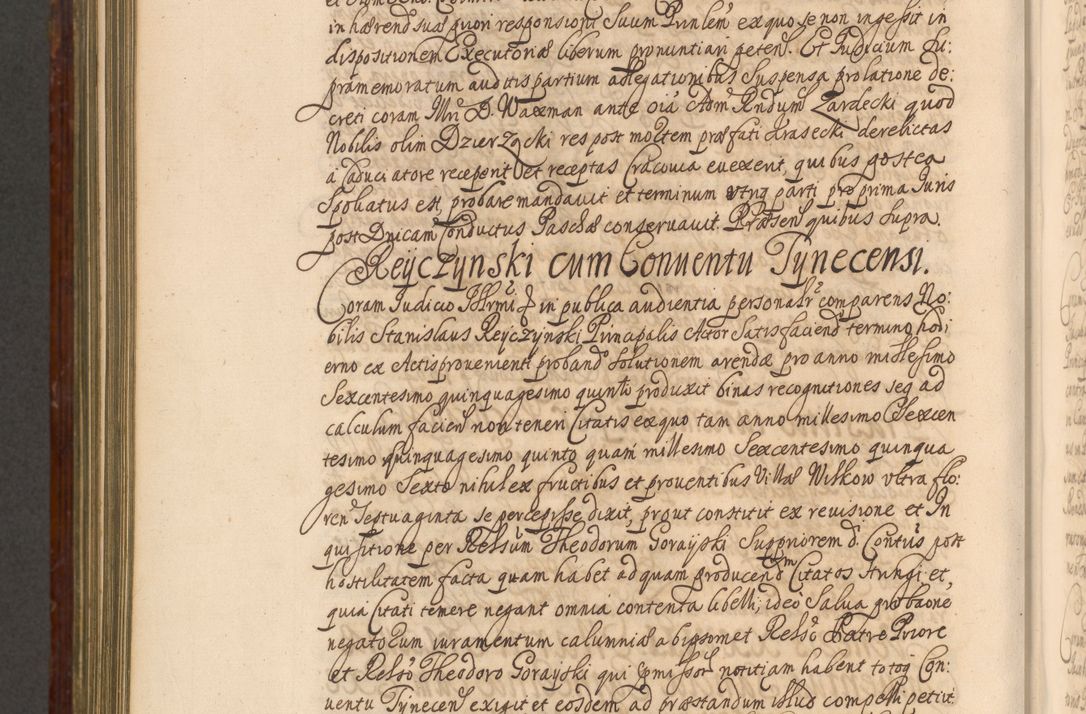 in hærend suæ priori responsioni suum Prinlem ex quo se non ingessit in
dispositionem Executoriæ liberum pronuntiari peten. Et Iudicium su:
pramemoratum auditis partium allegationibus Suspensa prolatione de:
creti coram Mri D. Waxman ante oia Adm Rndum Zardecki quod
Nobilis olim Dzierzocki res post mortem præfati Krasecki derelictas
a Caduci atore receperit et receptas Cracovia evexerit, quibus postea
Spoliatus est, probare mandavit et terminum utrq parti pro prima Iuris
post Dnicam Conductus Paschæ conservavit. Præsen quibus supra.
Reÿczÿnski cum Conventu Tÿnecensi.
Coram Iudicio Illrmi & in publica audientia personalr comparens No:
bilis Stanislaus Reÿczÿnski Principalis Actor Satisfaciend termino hodi
erno ex Actis provenienti proband Solutionem arendæ pro anno millesimo
Sexcentesimo quinquagesimo quinto produxit binas recognitiones seq ad
calculum facien non teneri Citatis ex quo tam anno millesimo Sexcen
tesimo quinquagesimo quinto quam millesimo Sexcentesimo quinqua
gesimo Sexto nihil ex fructibus et proventibus Villæ Wilkow ultra flo:
ren Septuaginta se percepisse dixit, prout constitit ex revisione et In
quisitione per Relsum Theodorum Goraÿski Suppriorem d. Contus post
hostilitatem facta quam habet ad quam producend Citatos stringi et,
quia Citati temere negant omnia contenta libelli, ideo Salva probaone
negatorum iuramentum calumniæ ab ipsomet Relso Patre Priore
et Relso Theodoro Goraÿski qui præmissor notitiam habent totoq Con:
ventu Tÿnecen exigit et eosdem ad præstandum illud compelli petiit